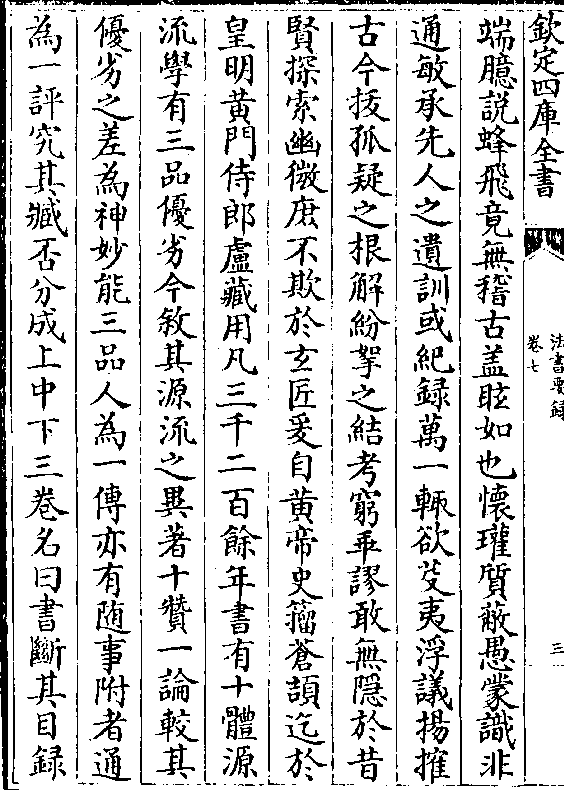 欽定四庫全書
法書要録
卷七
三
端臆説蜂飛竟無稽古盖眩如也懐瓘質蔽愚蒙識非
通敏承先人之遺訓或紀録萬一輙欲芟夷浮議揚搉
古今拔孤疑之根解紛挐之結考窮乖謬敢無隠於昔
賢探索幽微庶不欺於玄匠爰自黄帝史籀蒼頡迄於
皇明黄門侍郎盧藏用凡三千二百餘年書有十體源
流學有三品優劣今敘其源流之異著十贊一論較其
優劣之差為神妙能三品人為一傳亦有随事附者通
為一評究其臧否分成上中下三巻名曰書斷其目録